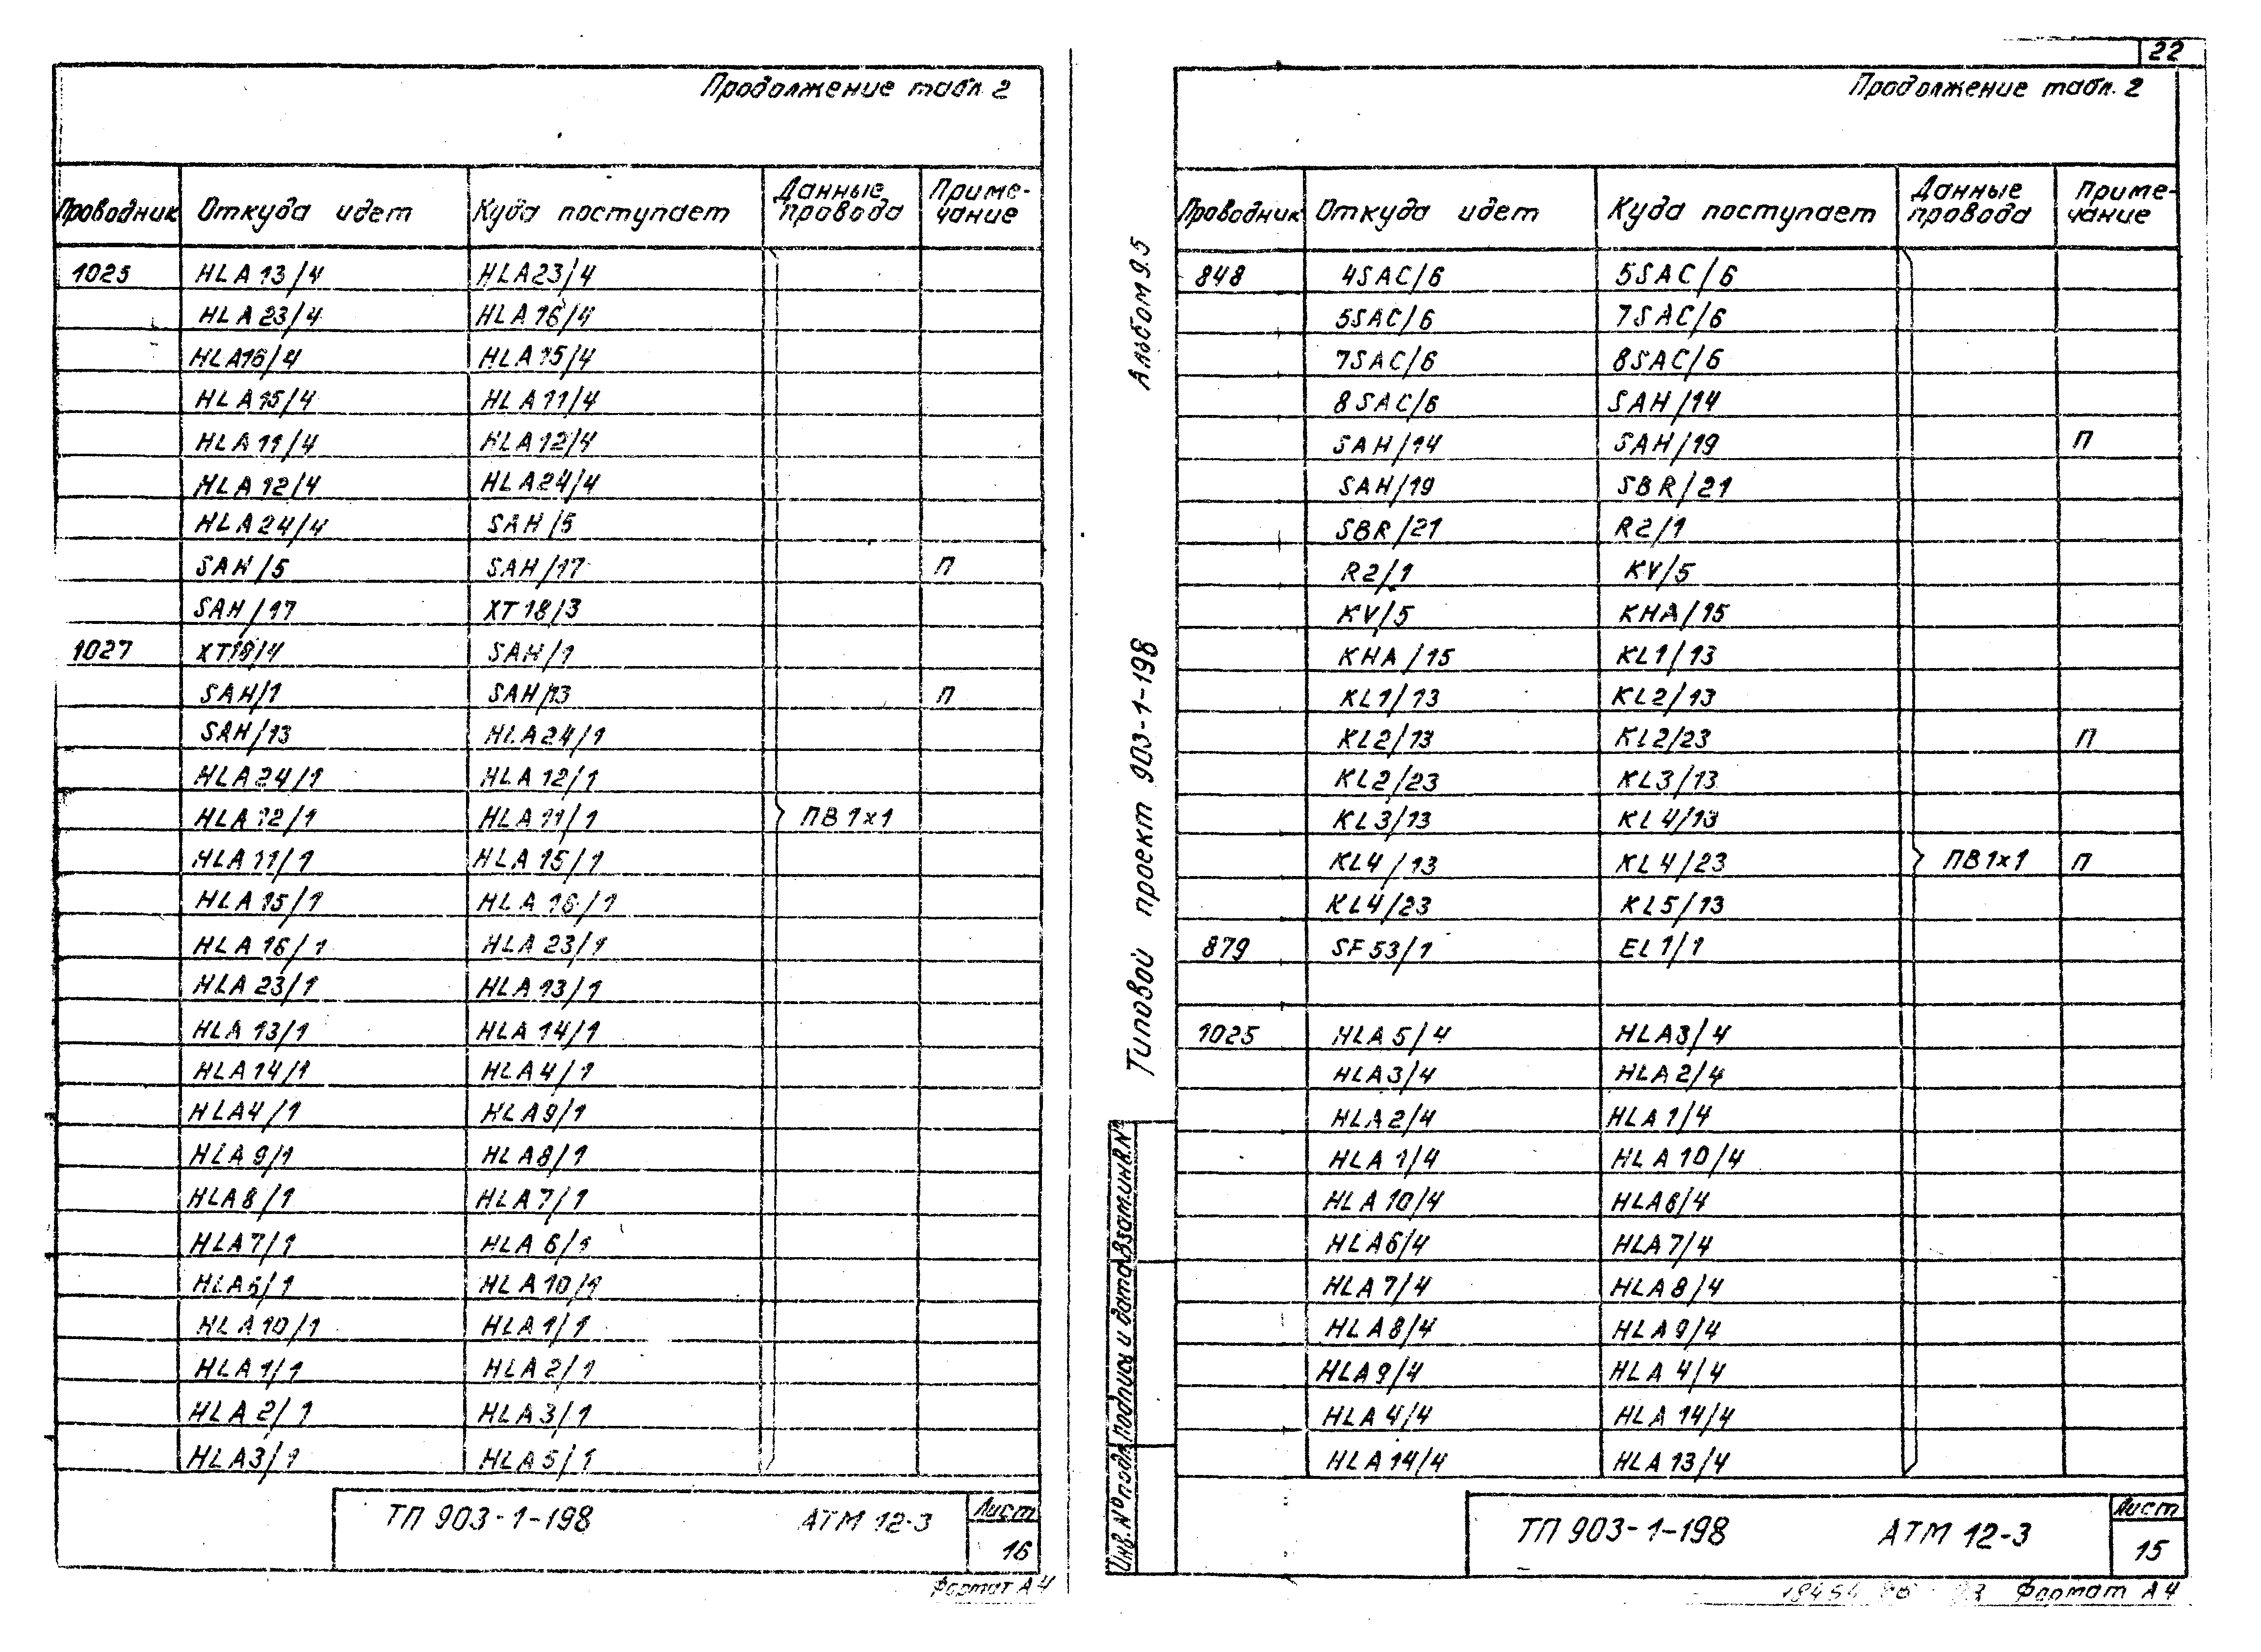 Продолжение табл. 2
Проводник Откуда идет Куда поступает Данные провода Приме-чание
1025 HLA13/4 HLA23/4
HLA23/4 HLA16/4
HLA16/4 HLA15/4
HLA15/4 HLA11/4
HLA11/4 HLA12/4
HLA12/4 HLA24/4
HLA24/4 SAH/5
SAH/5 SAH/17 П
SAH/17 XT18/3
1027 XT18/4 SAH/1
SAH/1 SAH/13 П
SAH/13 HLA24/1
HLA24/1 HLA12/1
HLA12/1 HLA11/1 ПВ1х1
HLA11/1 HLA15/1
HLA15/1 HLA16/1
HLA16/1 HLA23/1
HLA23/1 HLA13/1
HLA13/1 HLA14/1
HLA14/1 HLA4/1
HLA4/1 HLA9/1
HLA9/1 HLA8/1
HLA8/1 HLA7/1
HLA7/1 HLA6/1
HLA6/1 HLA10/1
HLA10/1 HLA1/1
HLA1/1 HLA2/1
HLA2/1 HLA3/1
HLA3/1 HLA5/1
ТП 903-1-198 АТМ 12-3 Лист
16
Формат А4
22
Продолжение табл. 2
Проводник Откуда идет Куда поступает Данные провода Приме-чание
848 4SAC/6 5SAC/6
5SAC/6 7SAC/6
7SAC/6 8SAC/6
8SAC/6 SAH/14
SAH/14 SAH/19 П
SAH/19 SBR/21
SBR/21 R2/1
R2/1 KV/5
KV/5 KHA/15
KHA/15 KL1/13
KL1/13 KL2/13
KL2/13 KL2/23 П
KL2/23 KL3/13
KL3/13 KL4/13
KL4/13 KL4/23 ПВ1х1 П
KL4/23 KL5/13
879 SF53/1 EL1/1
1025 HLA5/4 HLA3/4
HLA3/4 HLA2/4
HLA2/4 HLA1/4
HLA1/4 HLA10/4
HLA10/4 HLA6/4
HLA6/4 HLA7/4
HLA7/4 HLA8/4
HLA8/4 HLA9/4
HLA9/4 HLA4/4
HLA4/4 HLA14/4
HLA14/4 HLA13/4
Альбом 9.5
Типовой проект 903-1-198
Взам.инв.№
Подпись и дата
Инв.№ подл.
ТП 903-1-198 АТМ 12-3 Лист
15
Формат А4